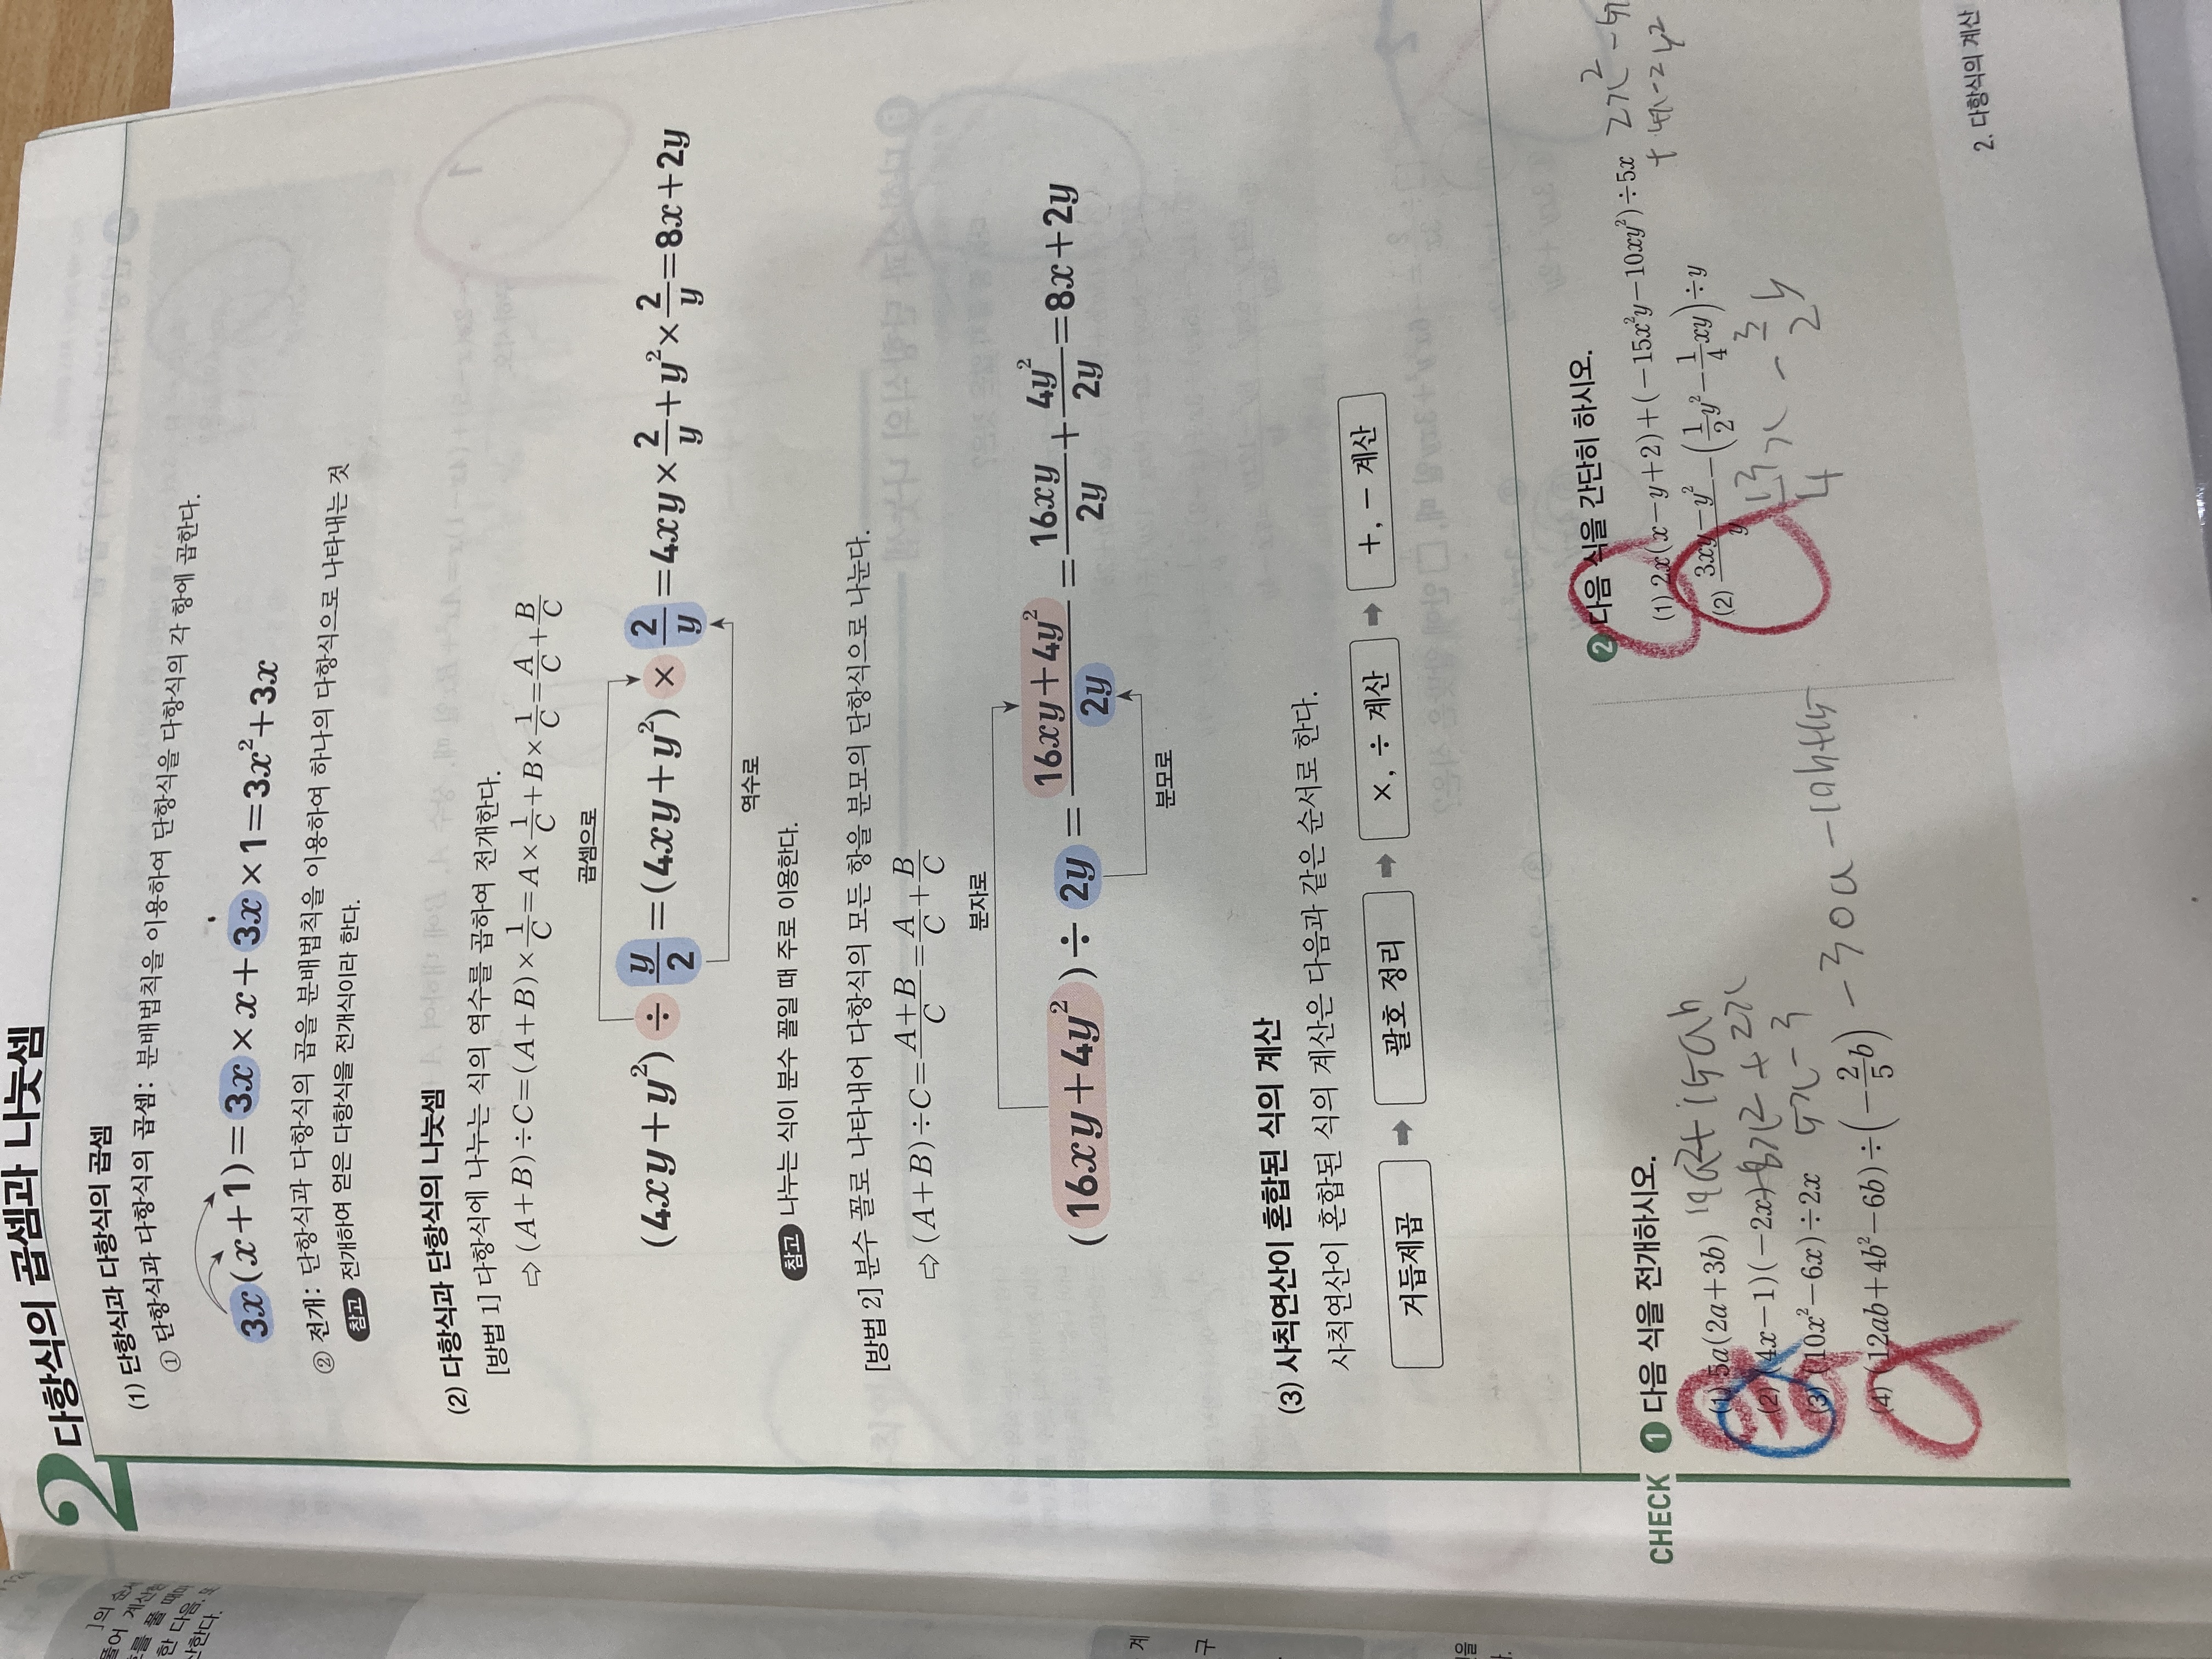 2 다항식의 곱셈과 나눗셈
(1) 단항식과 다항식의 곱셈
① 단항식과 다항식의 곱셈: 분배법칙을 이용하여 단항식을 다항식의 각 항에 곱한다.
3x(x+1)=3x×x+3x×1=3x²+3x
② 전개: 단항식과 다항식의 곱을 분배법칙을 이용하여 하나의 다항식으로 나타내는 것
참고 전개하여 얻은 다항식을 전개식이라 한다.
(2) 다항식과 단항식의 나눗셈
[방법 1] 다항식에 나누는 식의 역수를 곱하여 전개한다.
⇨ (A+B)÷C=(A+B)×1/C=A×1/C+B×1/C=A/C+B/C
곱셈으로
(4xy+y²)÷y/2=(4xy+y²)×2/y=4xy×2/y+y²×2/y=8x+2y
역수로
참고 나누는 식이 분수 꼴일 때 주로 이용한다.
[방법 2] 분수 꼴로 나타내어 다항식의 모든 항을 분모의 단항식으로 나눈다.
⇨ (A+B)÷C=A+B/C=A/C+B/C
분자로
(16xy+4y²)÷2y=16xy+4y²/2y=16xy/2y+4y²/2y=8x+2y
분모로
(3) 사칙연산이 혼합된 식의 계산
사칙연산이 혼합된 식의 계산은 다음과 같은 순서로 한다.
거듭제곱 ➡ 괄호 정리 ➡ ×, ÷ 계산 ➡ +, − 계산
CHECK
1 다음 식을 전개하시오.
(1) 5a(2a+3b) +15ab
(2) (4x−1)(−2x) -8x2+2x
(3) (10x²−6x)÷2x 5x-3
(4) (12ab+4b²−6b)÷(−2/5b) -30a-10b+15
2 다음 식을 간단히 하시오.
(1) 2x(x−y+2)+(−15x²y−10xy²)÷5x 2x2
+4x-2y2
(2) 3xy−y²/y−(1/2y²−1/4xy)÷y
13/4x-3/2y
2. 다항식의 계산
계
구